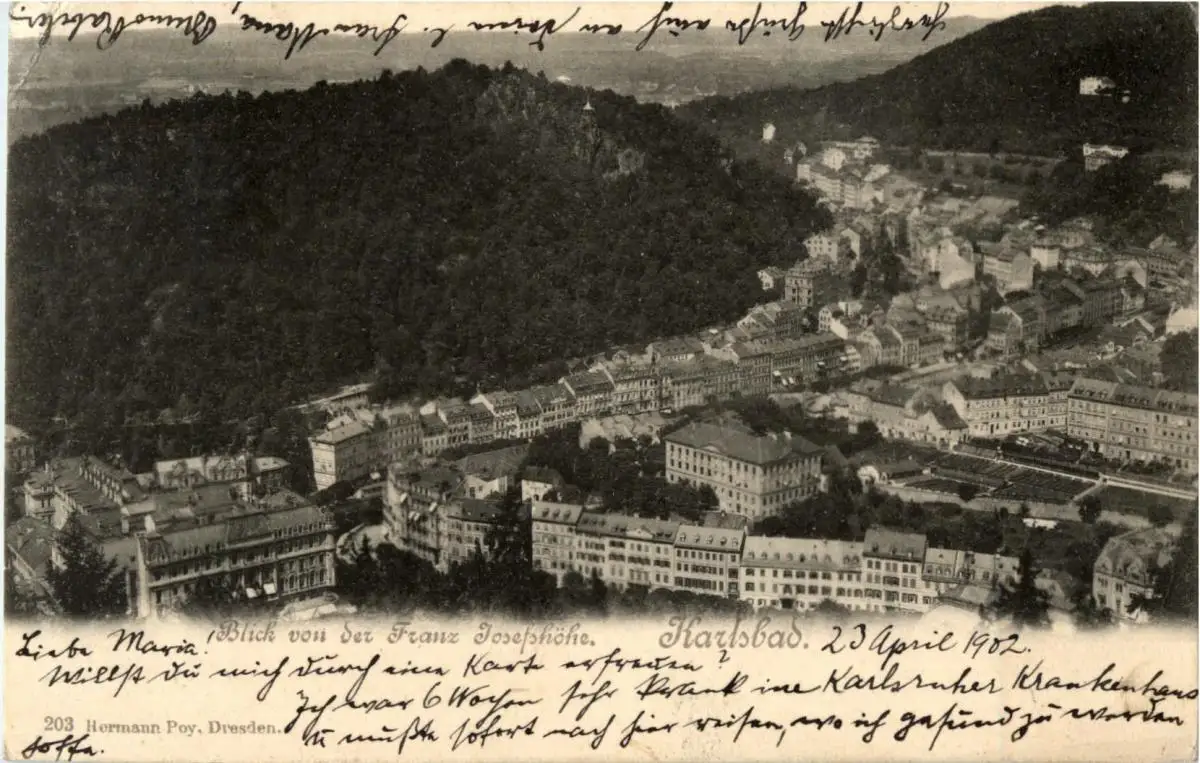 Liebe Maria! Blick von der Franz Josefshöhe. Karlsbad. 23 April 1902.
Willst du mich durch eine Karte erfreuen?
Ich war 6 Wochen sehr krank im Karlsruher Krankenhaus
203 Hermann Poy, Dresden. u mußte sofort nach hier reisen, wo ich gesund zu werden
hoffe.
Herzlichste Grüße auch an deine l. Frau Mama,
Bruno